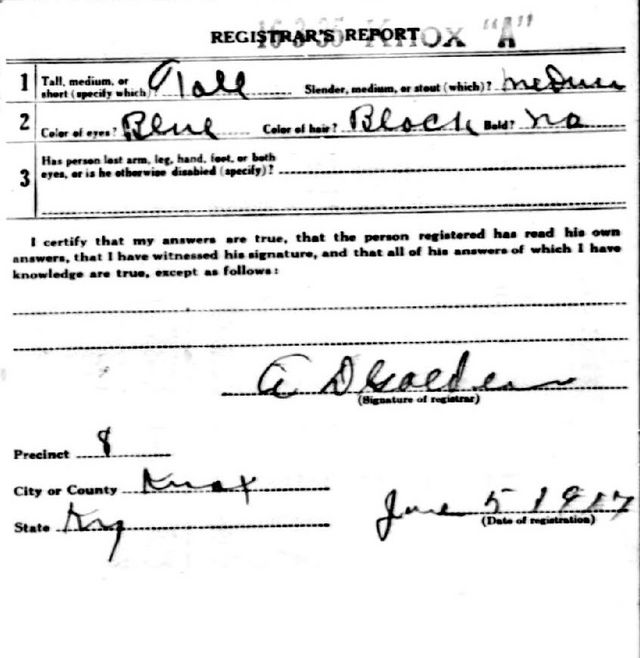 REGISTRAR'S REPORT 16-3-35 Knox "A"
1 Tall, medium, or short (specify which)? Tall Slender, medium, or stout (which)? medium
2 Color of eyes? Blue Color of hair? Black Bald? no
3 Has person lost arm, leg, hand, foot, or both
eyes, or is he otherwise disabled (specify)?
I certify that my answers are true, that the person registered has read his own
answers, that I have witnessed his signature, and that all of his answers of which I have
knowledge are true, except as follows:
A D Golden
(Signature of registrar)
Precinct 8
City or County Knox
State Ky
June 5 1917
(Date of registration)